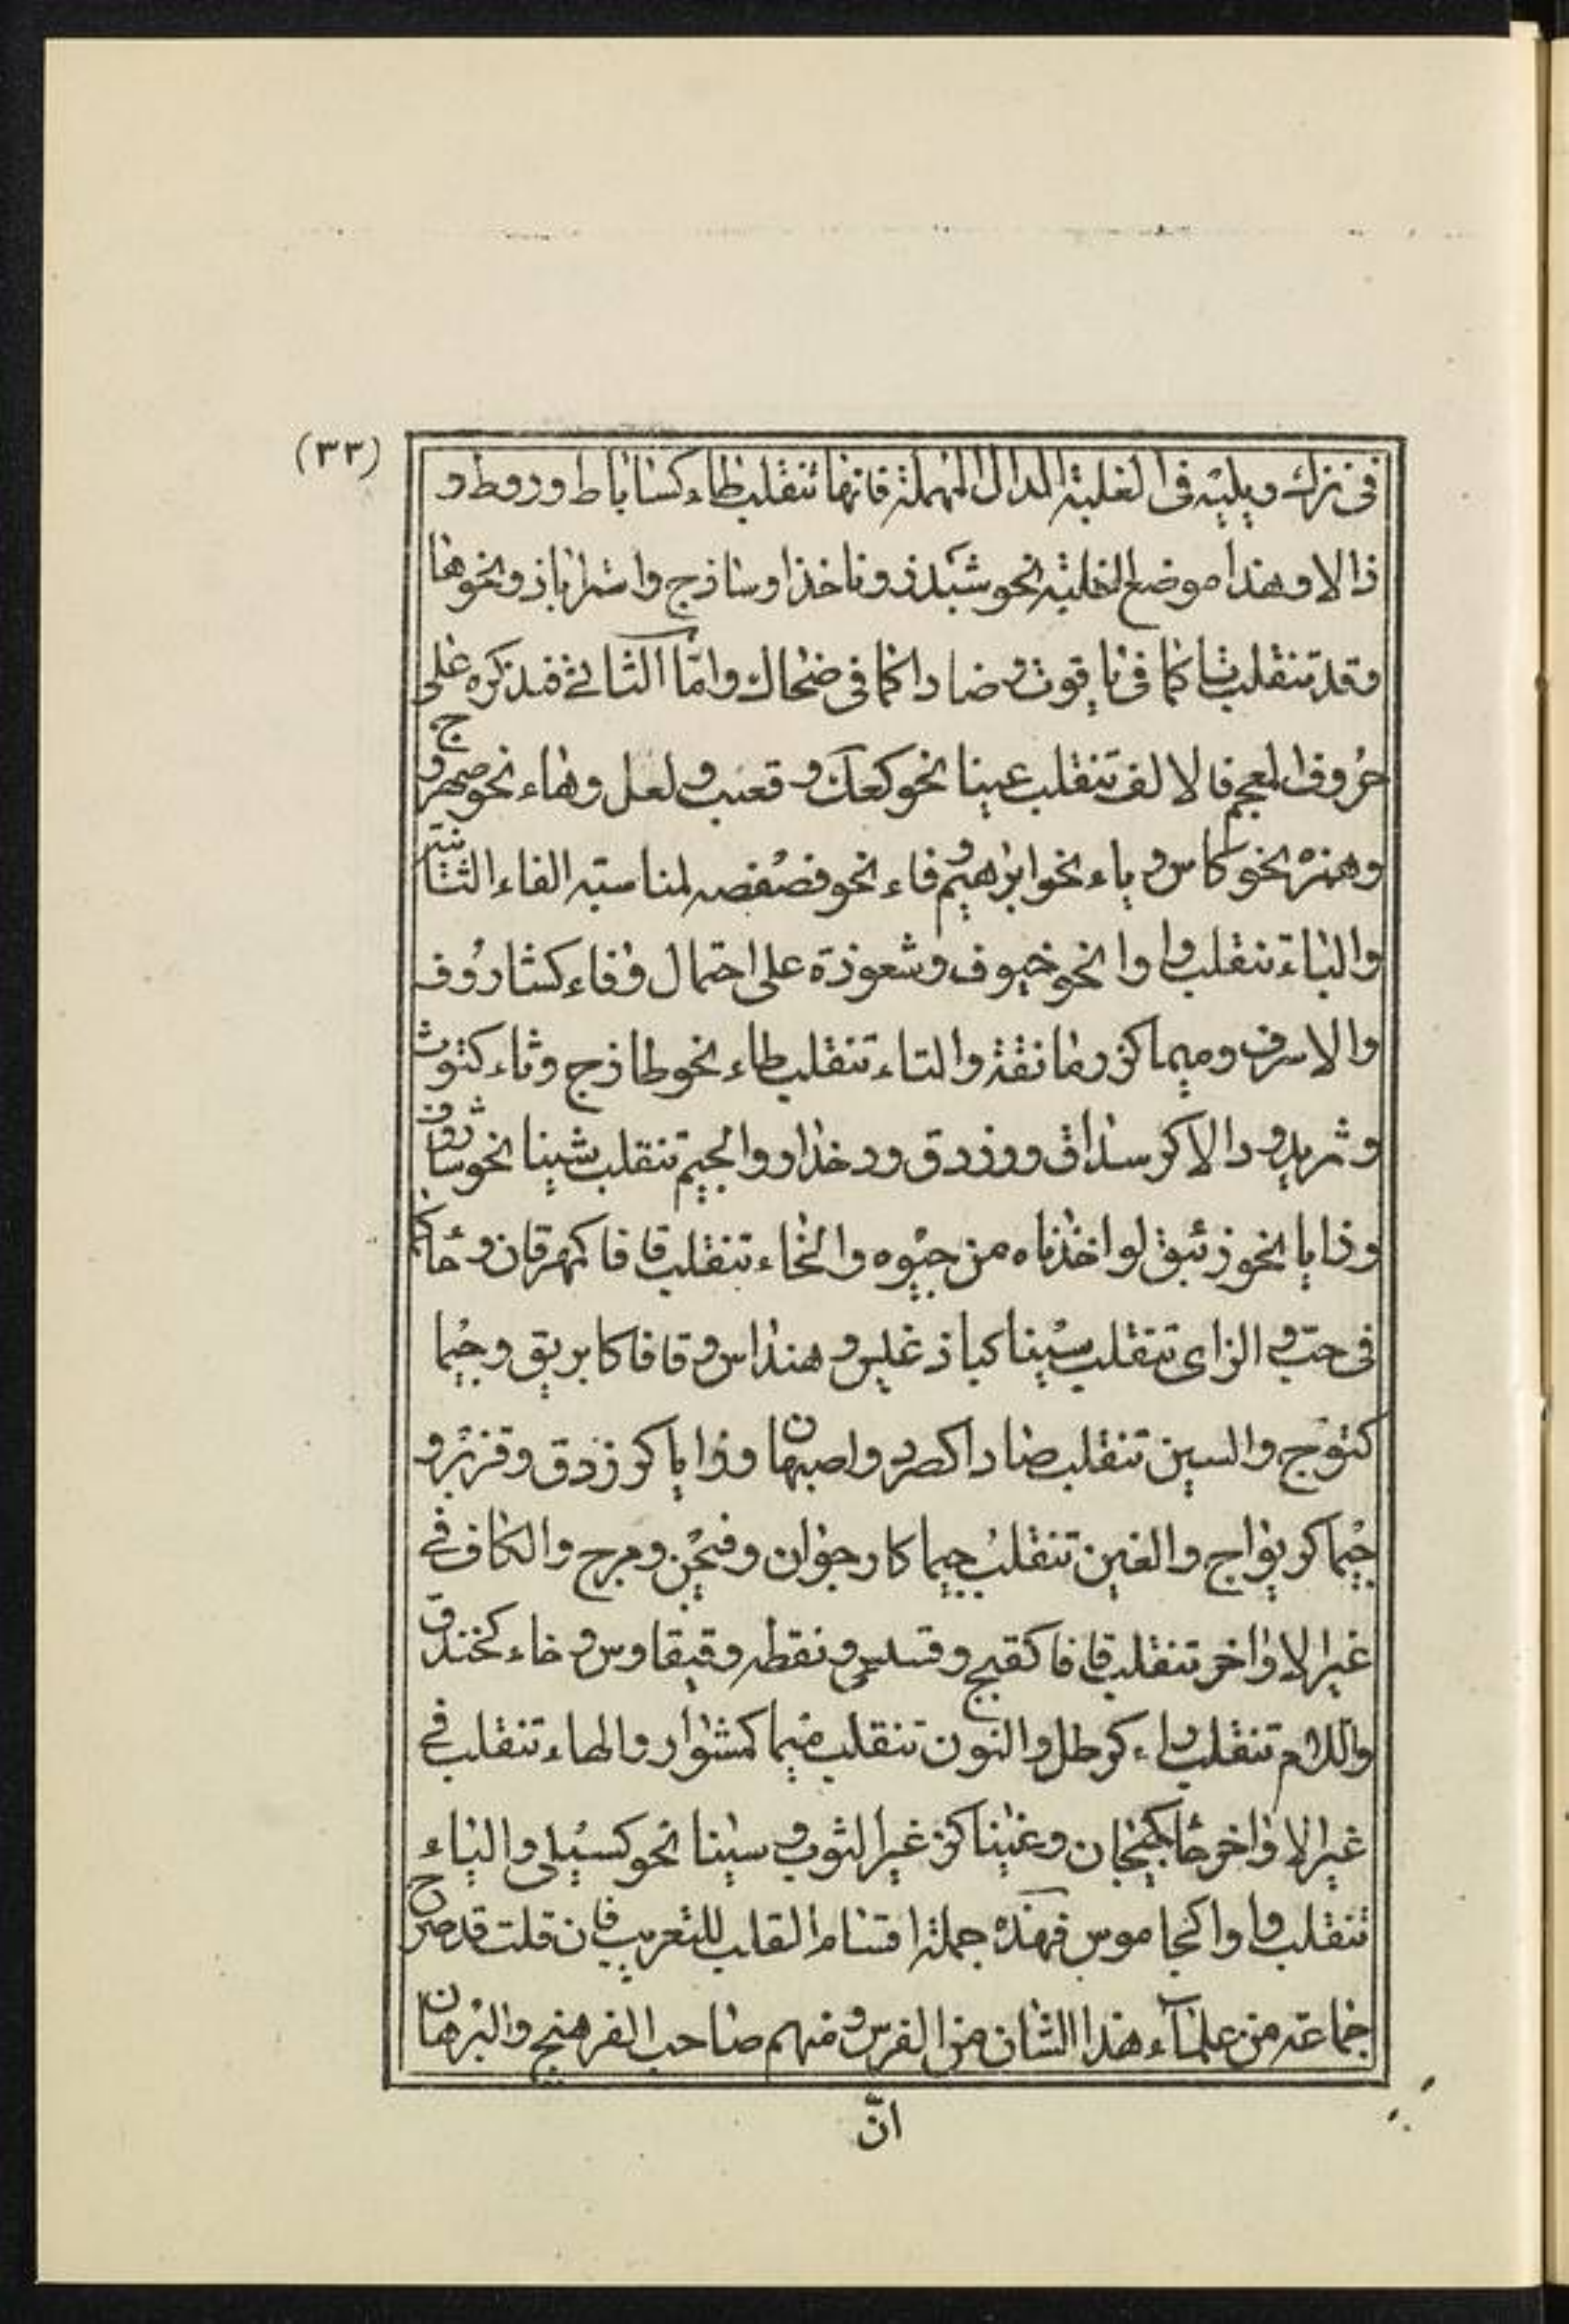 (٣٣)
فى نزك ويليه فى الغلبة الدال المهملة فانها تنقلب طاء كساباط وروط و
ذالا وهذا موضع الغلبة نحو شبدذ وناخذا وساذج واستراباذ ونحوها
وقد تنقلب تا كما فى ياقوت وضادا كما فى ضحاك وامّا الثانى فنذكره على
حروف المعجم فالالف تنقلب عينا نحو كعك و قعنب و لعل وهاء نحو صهريج و
وهمزة نحو كاس و ياء نحو ابراهيم و فاء نحو فصفصه لمناسبة الفاء الثانية
والباء تنقلب واوا نحو خيوف وشعوذة على احتمال وفاء كشاروف
والاسرف وميما كن ومانقة والتاء تنقلب طاء نحو طازج وثاء كتوث
وثريد و دالا كرسداق ووزدق ودخدار والجيم تنقلب شينا نحو شاروف
وزايا نحو زئبق لو اخذناه من جيوه والخاء تنقلب قافا كمهرقان وحا كما
فى حب والزاى تنقلب سينا كباذغيس و هنداس و قافا كابريق وجيما
كتوج والسين تنقلب صادا كصرد واصبهان وزايا كرزدق وقزبر و
جيما كريواج والغين تنقلب جيما كارجوان وفيجن ومرج والكاف فى
غير الاواخر تنقلب قافا كقبج و و نقطه وقيقاوس و خاء كخندق
واللام تنقلب راء كرطل والنون تنقلب ميما كمشوار والهاء تنقلب فى
غير الاواخر حا وغينا كن غير الثوب و سينا نحو كسيلى والياء
تنقلب واوا كجاموس فهذه جملة اقسام القلب للتعريب فان قلت قد صرح
جماعة من علماء هذا الشان من الفرس و منهم صاحب الفرهنج والبرهان
انّ